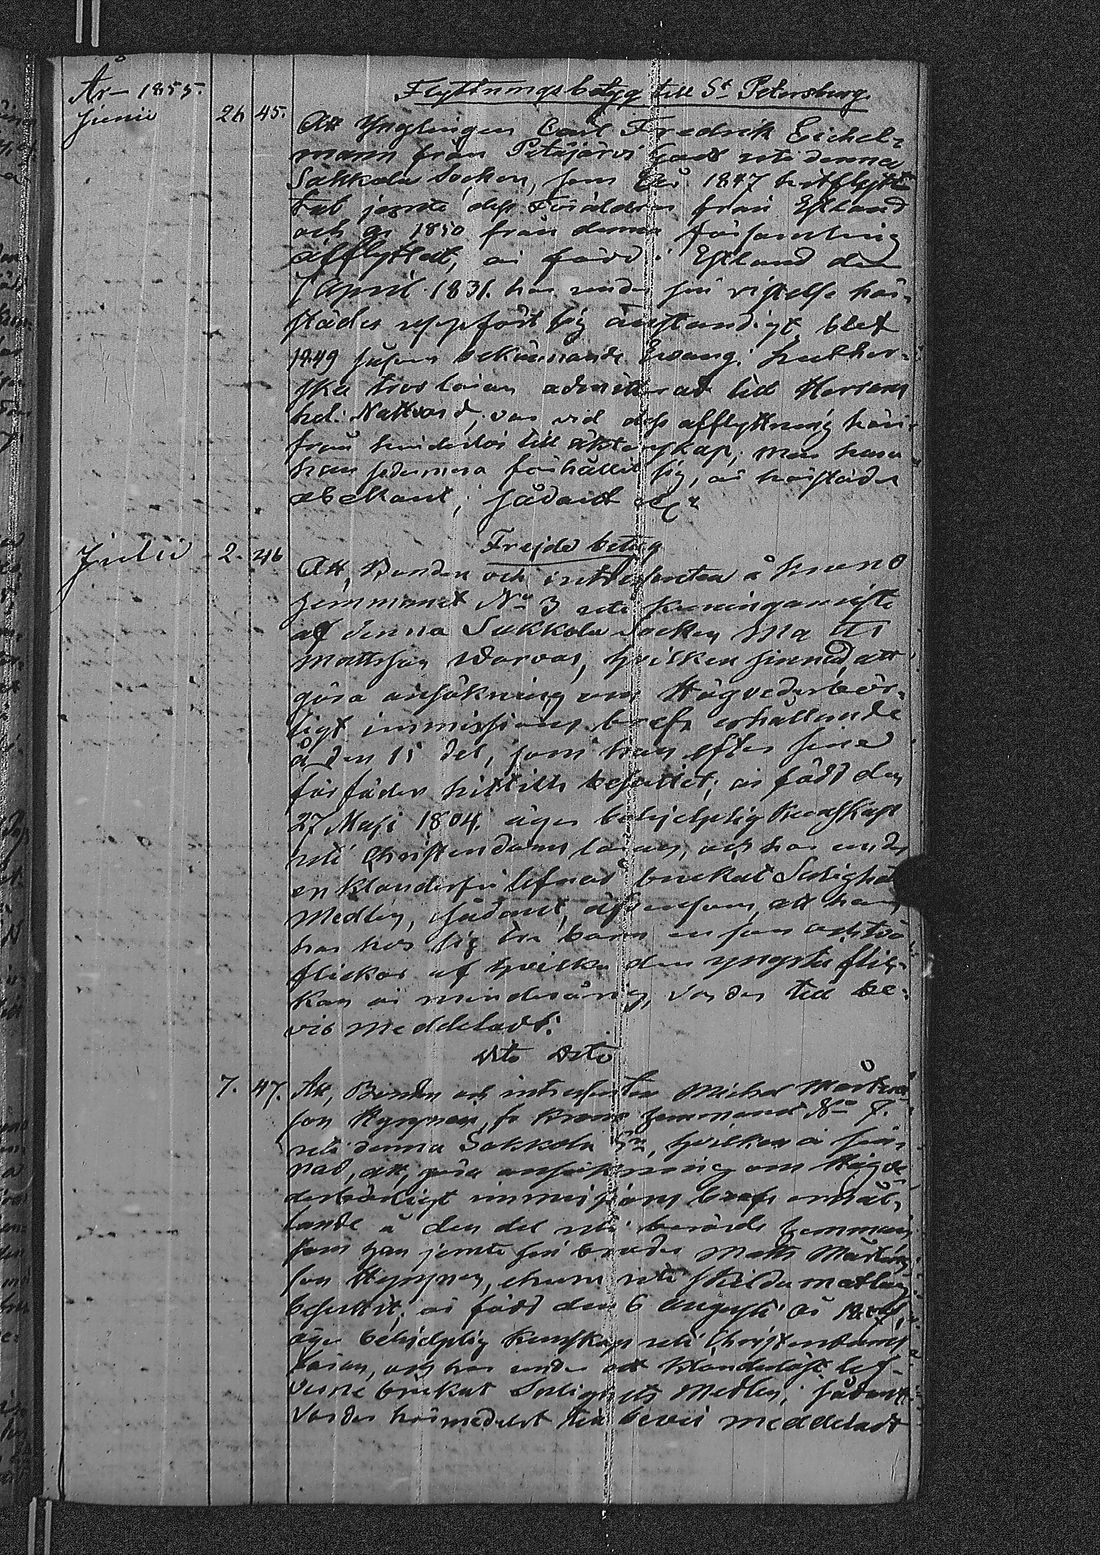 År 1855. Flyttningsbetyg till St Petersburg
Junii 26 45. Att Ynglingen Carl Fredrik Eichel-
mann från Petäjärvi uti denna
Sakkola Socken, som År 1847
jemte dess Föräldrar från Estland
och år 1850 från denna församling
afflyttat, är född i Estland den
7 April 1831. har under sin vistelse här-
städes uppfört sig anständigt, blef
1849 Evang: Luther-
ska trosläran admitterad till Herrans
hel: Nattvard, var vid dess afflyttning här-
från hinderlös till äktenskap, men huru
han sedermera förhållit sig, är härstädes
obekant; sådant
Julii 2. 46 Frejde betyg
Att, Bonden och å krono
hemmanet No 3 uti
af denna Sakkola Socken Matts
Mattsson hvilken sinnad att
göra ansökning om Högvederbör-
ligt immissions bref erhållande
å den del, som han efter sine
förfäder hittills besuttit, är född den
27 Maji 1804. äger behjelplig kunskap
uti Christendoms läran, och har under
en klanderfri lefnad brukat Salighets
Medlen, sådant, äfvensom, att han
har hos sig tre barn en son och två
flickor af hvilka den yngsta flic-
kan är minderårig, varder till be-
vis meddeladt.
Dito Dito
7. 47. Att, Bonden och Michel Mårtens
son No
uti denna Sakkola Sn, hvilken är sin-
nad, att, göra ansökning om Högve-
derbörligt immissions brefs erhål-
lande å den del uti berörde hemman
som han jemte sin broder Matts Mårtens
son uti skilda matlag
besuttit, är född den 6 Augusti år
äger behjelplig kunskap uti Christendoms
läran, och har under ett klanderlöst lef-
verne brukat Salighets Medlen; sådant
varder härmedelst till bevis meddeladt